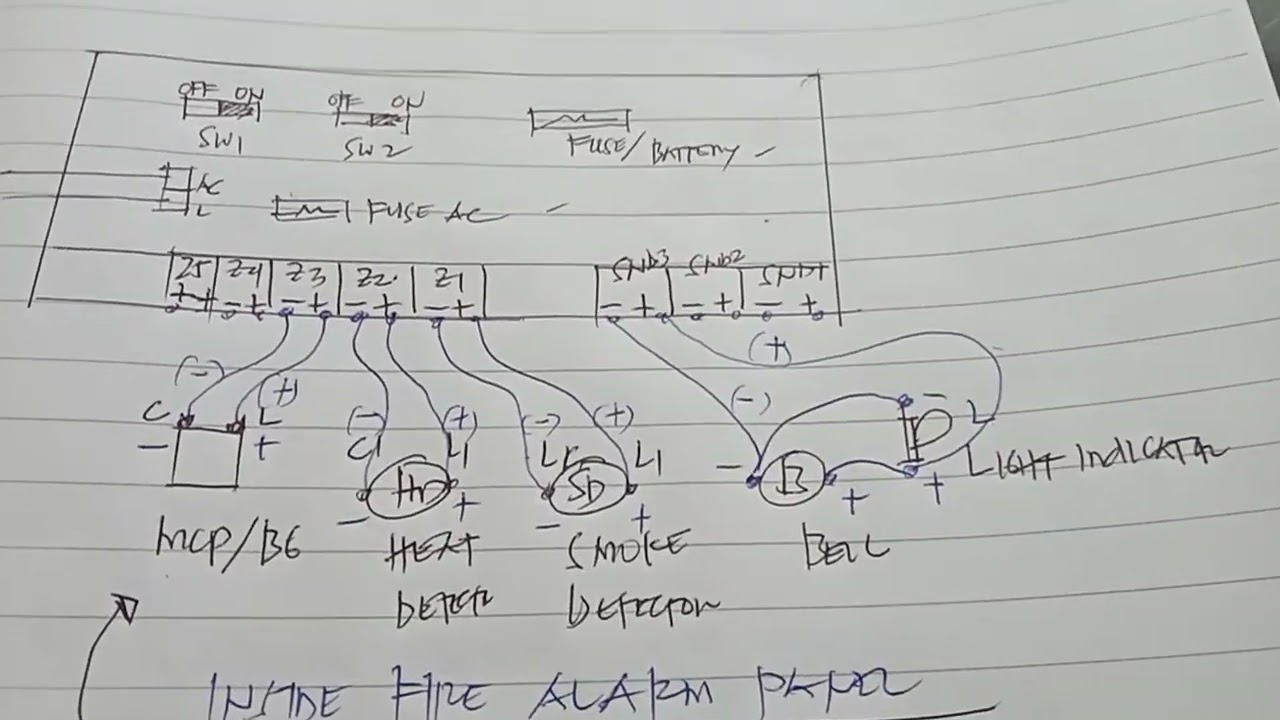 OFF ON OFF ON
SW1 SW2 FUSE/BATTERY
AC
L FUSE AC
Z5 Z4 Z3 Z2 Z1 SND3 SND2 SND1
- + - + - + - + - + - + - +
(-) (+) (-) (+) (-) (+) (-) (+)
C L L1 L1 L
- + HD SD - B + - +
- + - + LIGHT INDICATOR
MCP/BG HEAT SMOKE BELL
DETECTOR
INSIDE FIRE ALARM PANEL